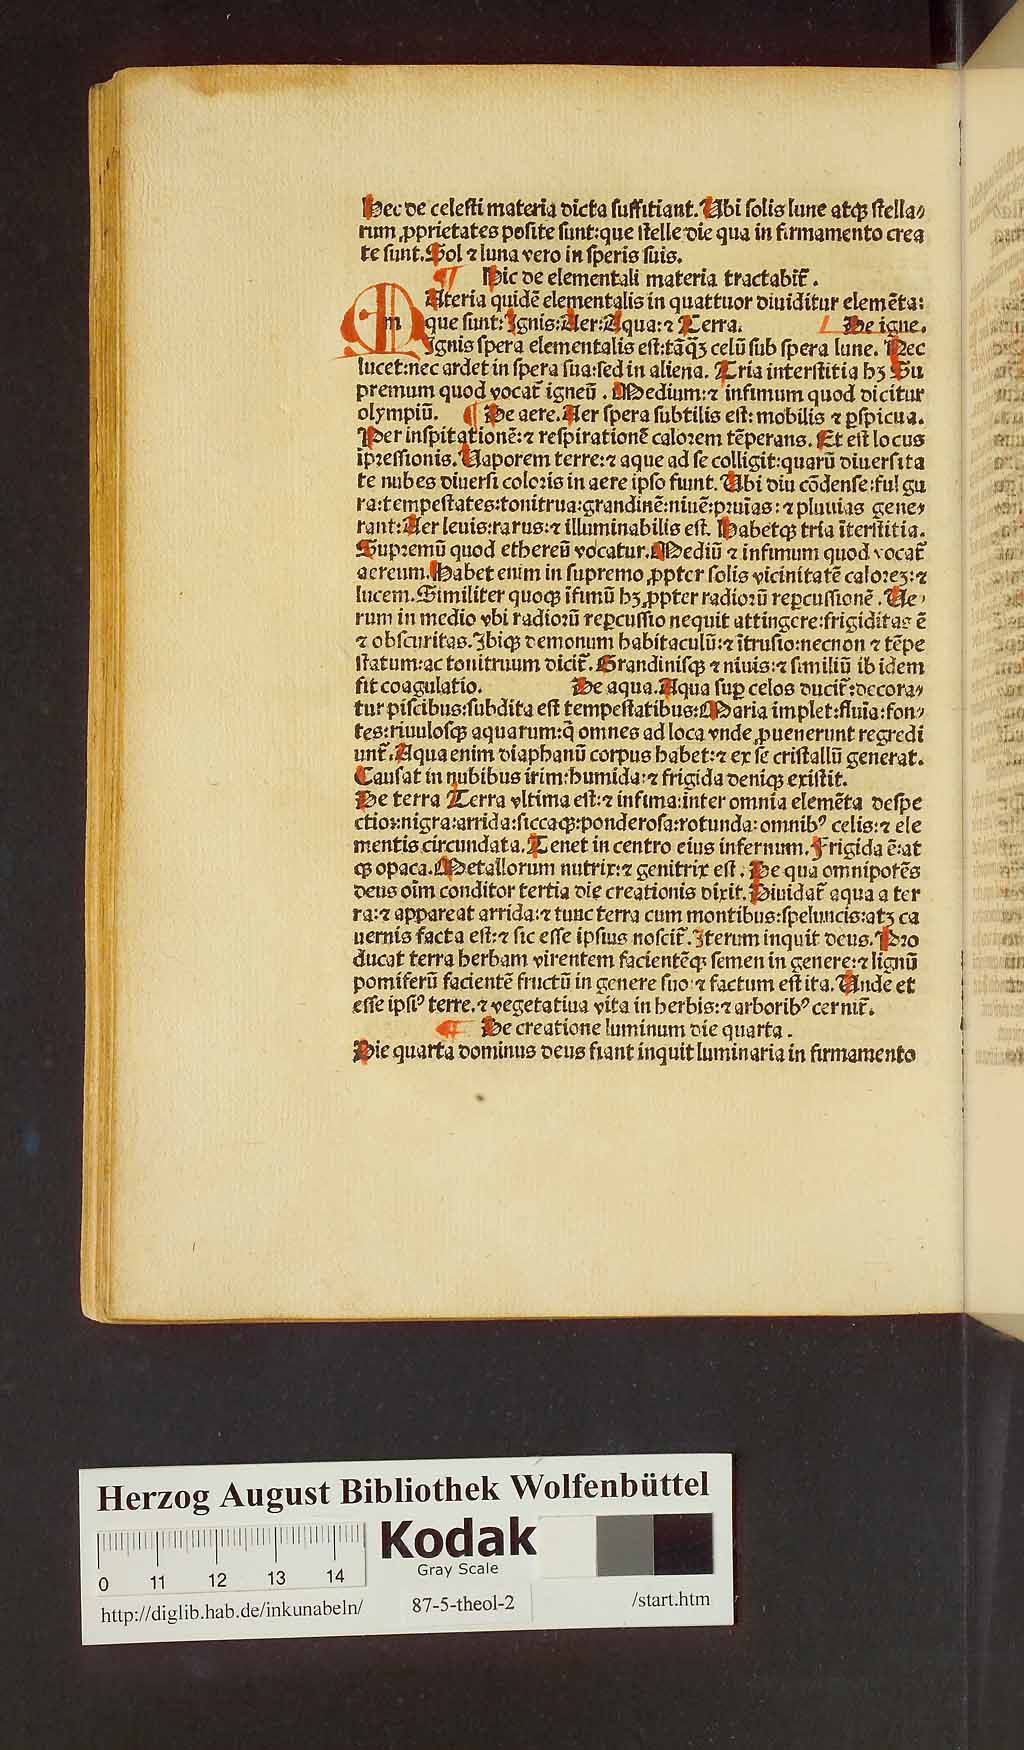 Hec de celesti materia dicta suffitiant. Ubi solis lune atqꝫ stella⸗
rum ꝓprietates posite sunt: que stelle die qua in firmamento crea
te sunt. Sol ⁊ luna vero in speris suis.
¶ Hic de elementali materia tractabit̄.
MAteria quidē elementalis in quattuor diuiditur elemēta:
que sunt: Ignis: Aer: Aqua: ⁊ Terra. De igne.
Ignis spera elementalis est: tāqꝫ celū sub spera lune. Nec
lucet: nec ardet in spera sua: sed in aliena. Tria interstitia hꝫ Su
premum quod vocat̄ igneū. Medium: ⁊ infimum quod dicitur
olympiū. ¶ De aere. Aer spera subtilis est: mobilis ⁊ ꝑspicua.
Per inspitationē: ⁊ respirationē calorem tēperans. Et est locus
ipressionis. Uaporem terre: ⁊ aque ad se colligit: quarū diuersita
te nubes diuersi coloris in aere ipso fiunt. Ubi diu cōdense: fulgu
ra: tempestates: tonitrua: grandinē: niuē: pruīas: ⁊ pluuias gene⸗
rant: Aer leuis: rarus: ⁊ illuminabilis est. Habetqꝫ tria īterstitia.
Supremū quod ethereū vocatur. Mediū ⁊ infimum quod vocat̄
aereum. Habet enim in supremo ꝓpter solis vicinitatē caloreꝫ: ⁊
lucem. Similiter quoqꝫ ifimū hꝫ ꝓpter radiorū reꝑcussionē. Ue⸗
rum in medio vbi radiorū reꝑcussio nequit attingere: frigiditas ē
⁊ obscuritas. Ibiqꝫ demonum habitaculū: ⁊ ītrusio: necnon ⁊ tēpe
statum: ac tonitruum dicit̄. Grandinisqꝫ ⁊ niuis: ⁊ similiū ibidem
fit coagulatio. De aqua. Aqua suꝑ celos ducit̄: decora⸗
tur piscibus: subdita est tempestatibus: Maria implet: fluīa: fon⸗
tes: riuulosqꝫ aquarum: q̄ omnes ad loca vnde ꝓuenerunt regredi
unt̄. Aqua enim diaphanū corpus habet: ⁊ ex se cristallū generat.
Causat in nubibus irim: humida: ⁊ frigida deniqꝫ existit.
De terra Terra vltima est: ⁊ infima: inter omnia elemēta despe
ctior: nigra: arrida: siccaqꝫ: ponderosa: rotunda: omnibꝰ celis: ⁊ ele
mentis circundata. Tenet in centro eius infernum. Frigida ē: at
qꝫ opaca. Metallorum nutrix: ⁊ genitrix est. De qua omnipotēs
deus oīm conditor tertia die creationis dixit. Diuidat̄ aqua a ter
ra: ⁊ appareat arrida: ⁊ tunc terra cum montibus: speluncis: atꝫ ca
uernis facta est: ⁊ sic esse ipsius noscit̄. Iterum inquit deus. Pro
ducat terra herbam virentem facientēqꝫ semen in genere: ⁊ lignū
pomiferū facientē fructū in genere suo ⁊ factum est ita. Unde et
esse ipsiꝰ terre. ⁊ vegetatiua vita in herbis: ⁊ arboribꝰ cernit̄.
¶ De creatione luminum die quarta.
Die quarta dominus deus fiant inquit luminaria in firmamento
Herzog August Bibliothek Wolfenbüttel
Kodak
Gray Scale
0 11 12 13 14
http://diglib.hab.de/inkunabeln/ 87-5-theol-2 /start.htm